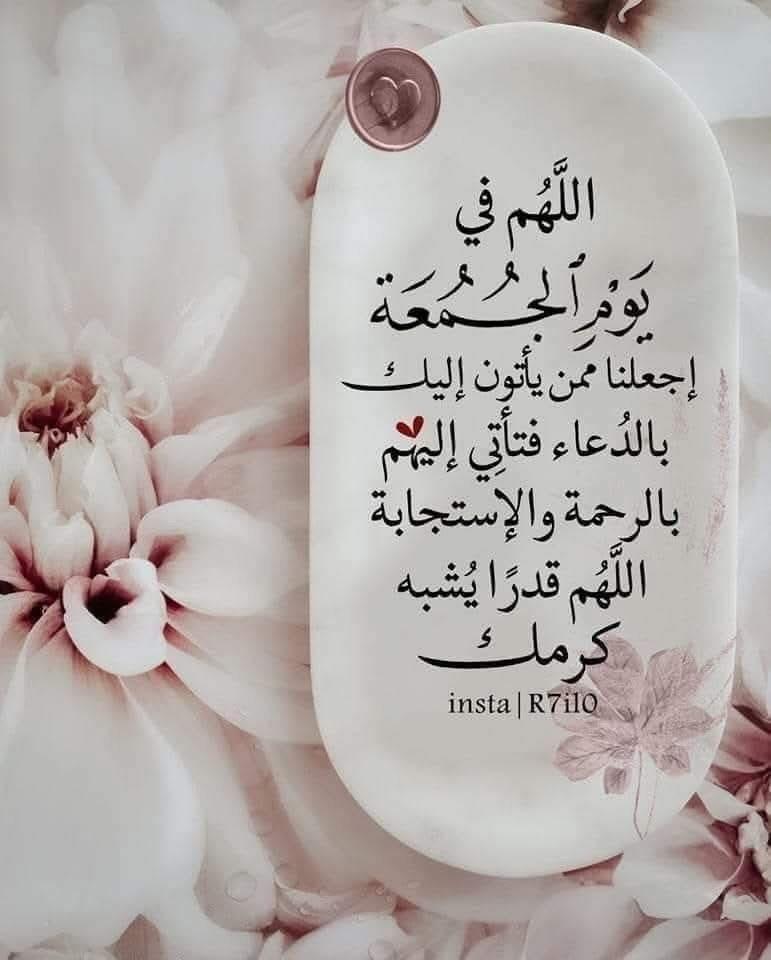 اللَّهُم في
يَوْمِ ٱلجُمُعَة
إجعلنا ممن يأتون إليك
بالدُعاء فتأتِي إليهم
بالرحمة والإستجابة
اللَّهُم قدرًا يُشبه
كرمك
insta|R7il0